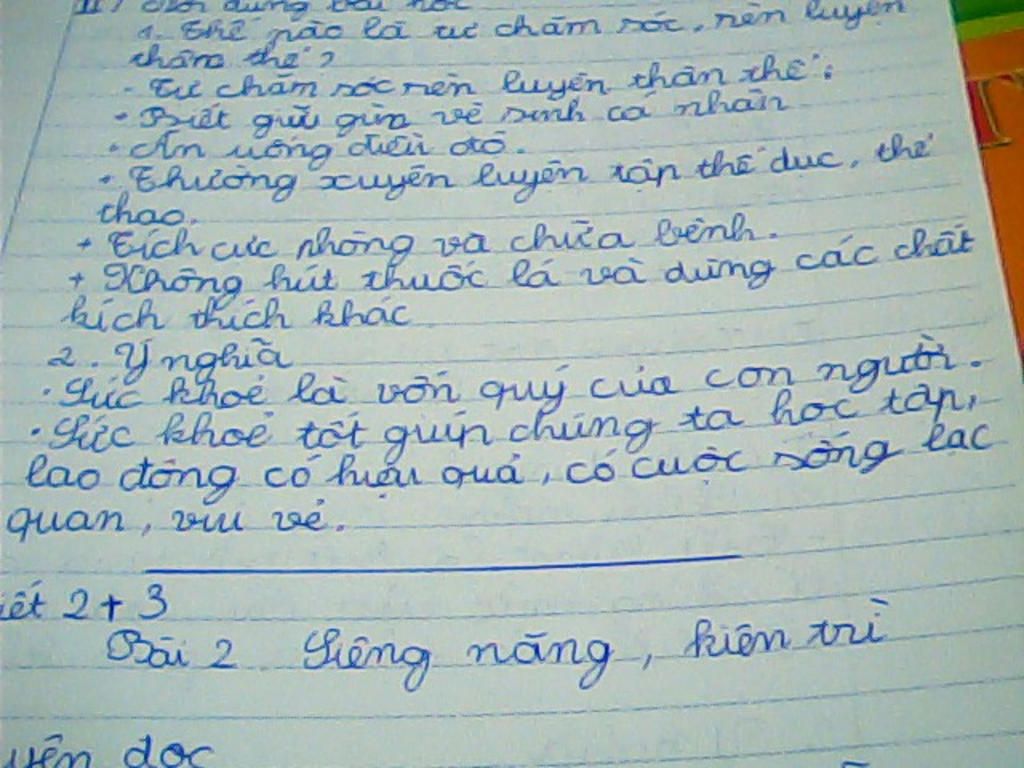 II) Nội dung bài học
1. Thế nào là tự chăm sóc, rèn luyện
thân thể?
- Tự chăm sóc rèn luyện thân thể:
+ Biết giữ gìn vệ sinh cá nhân
+ Ăn uống điều độ.
+ Thường xuyên luyện tập thể dục, thể
thao.
+ Tích cực phòng và chữa bệnh.
+ Không hút thuốc lá và dùng các chất
kích thích khác
2. Ý nghĩa
- Sức khoẻ là vốn quý của con người.
- Sức khoẻ tốt giúp chúng ta học tập,
lao động có hiệu quả, có cuộc sống lạc
quan, vui vẻ.
iết 2+3
Bài 2 Siêng năng, kiên trì
uyện đọc